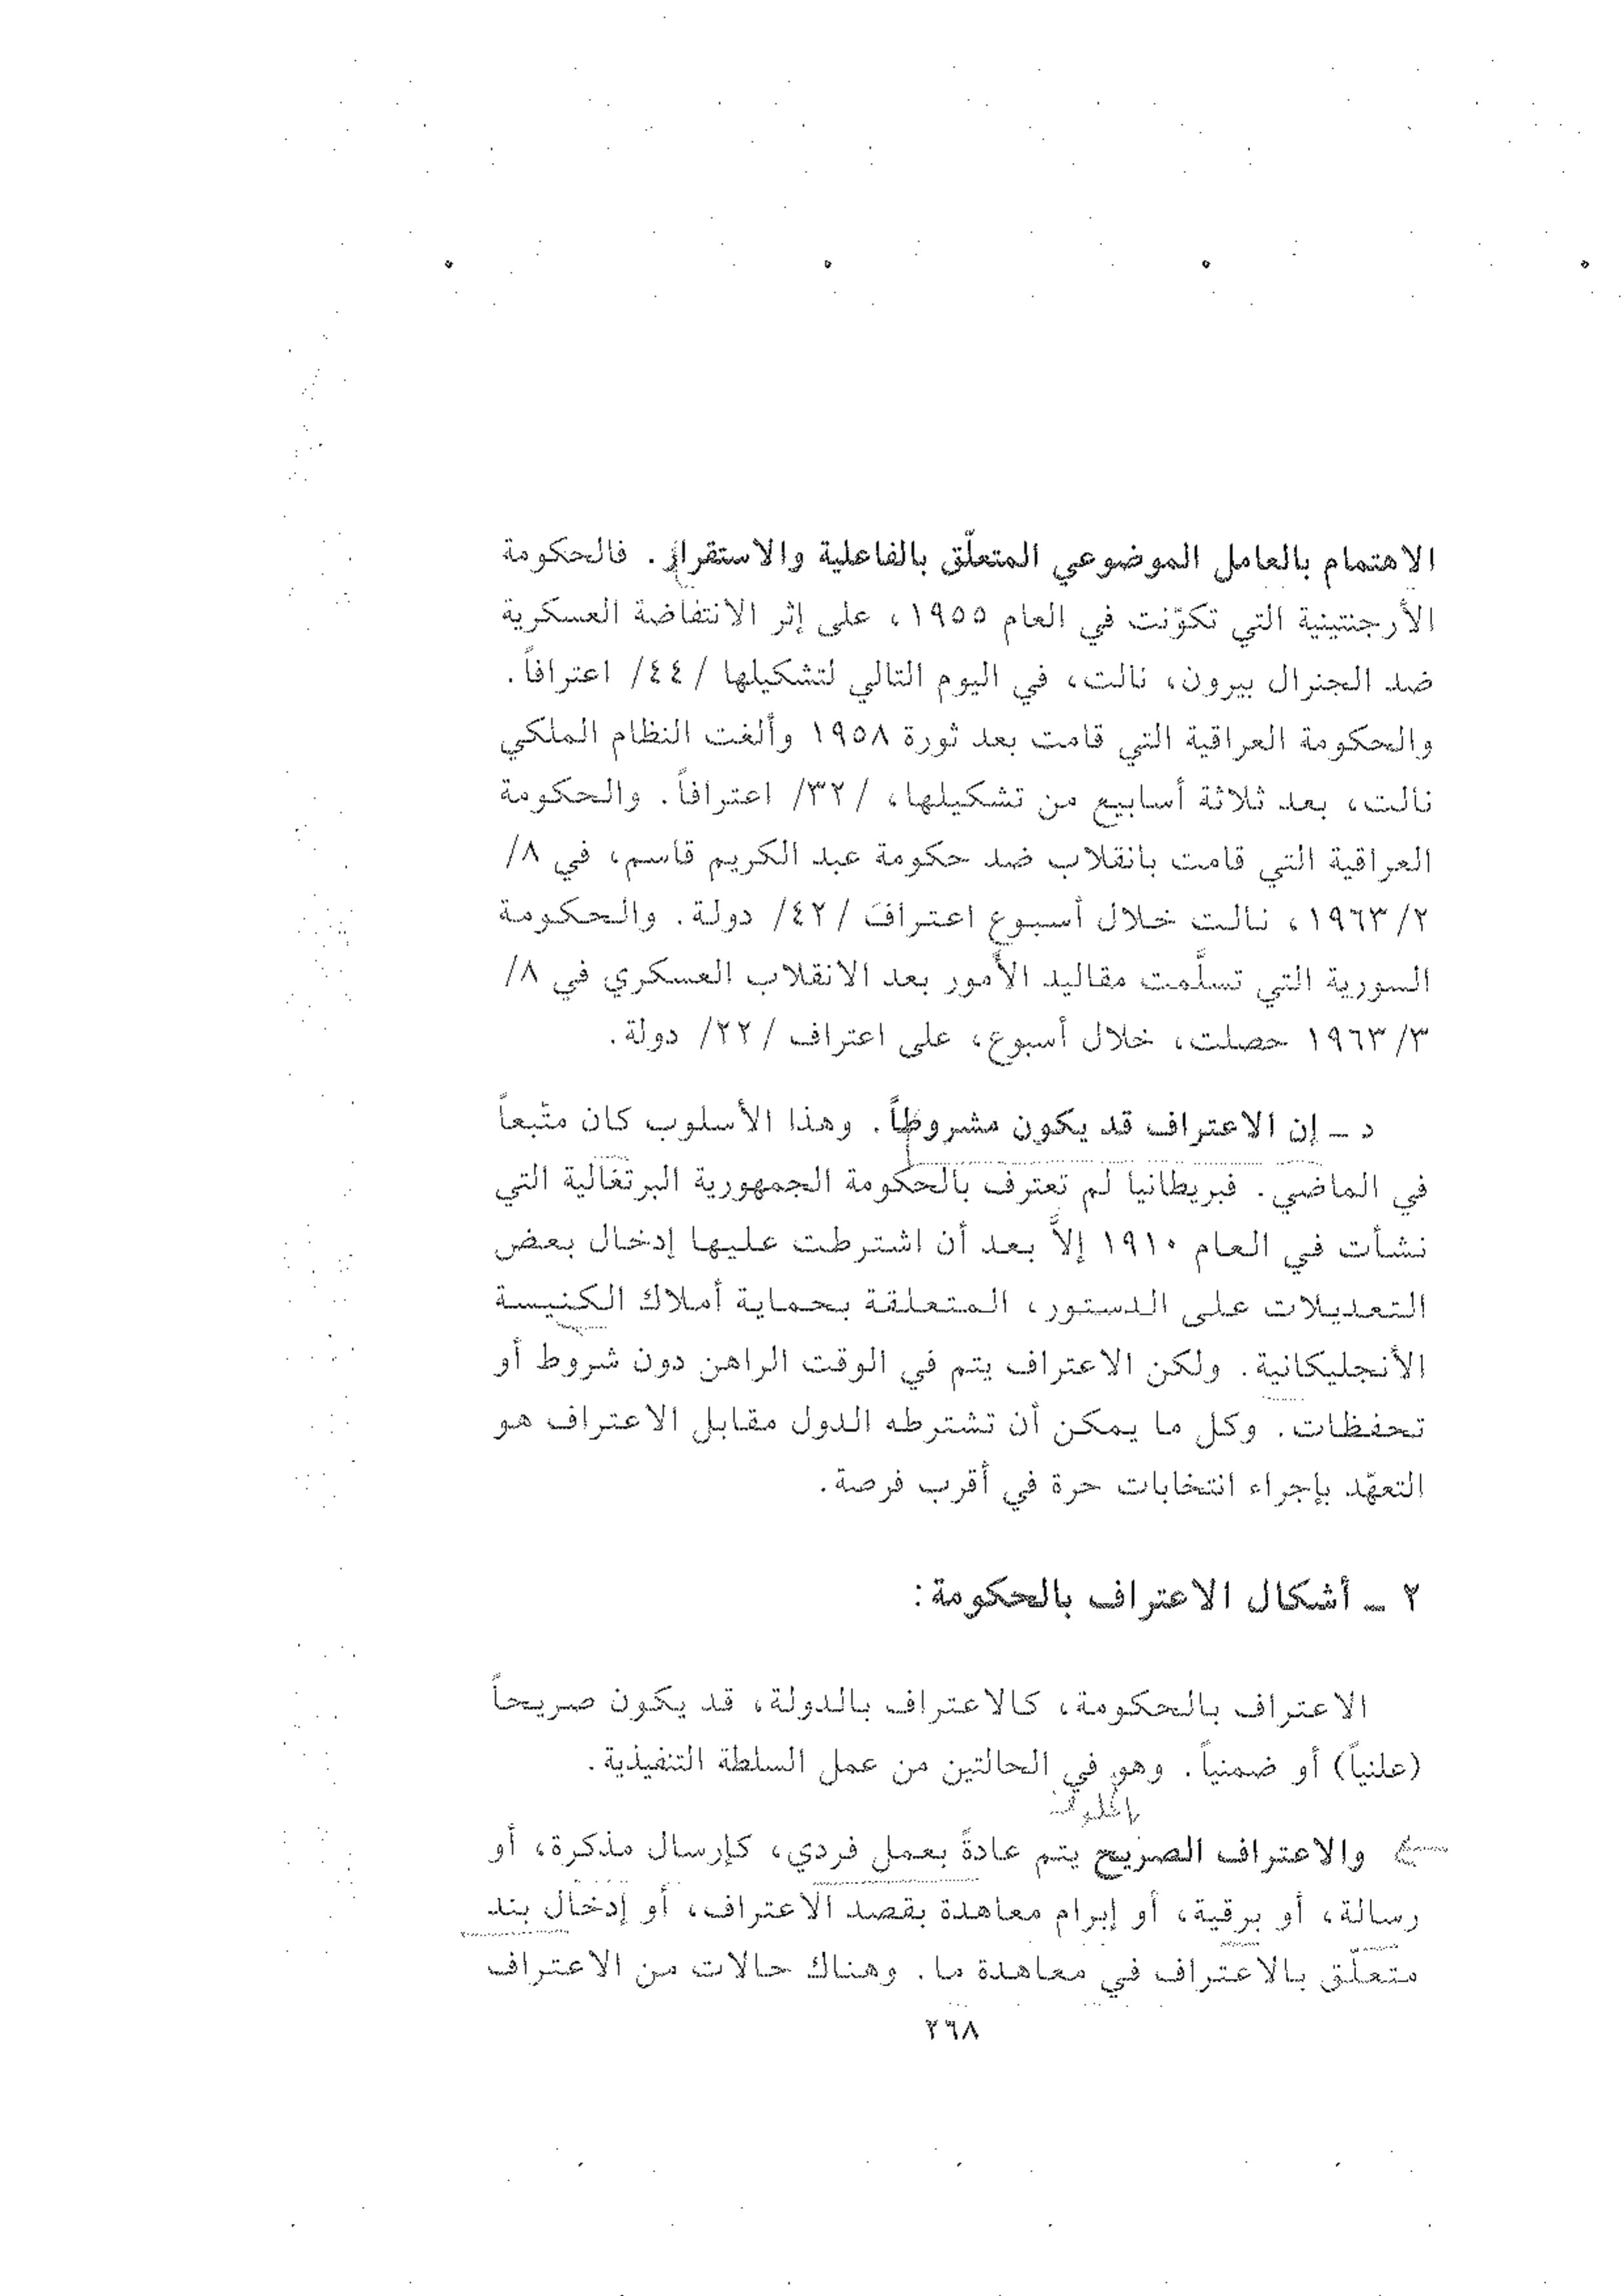 الاهتمام بالعامل الموضوعي المتعلّق بالفاعلية والاستقرار. فالحكومة
الأرجنتينية التي تكوّنت في العام ١٩٥٥، على إثر الانتفاضة العسكرية
ضد الجنرال بيرون، نالت، في اليوم التالي لتشكيلها /٤٤/ اعترافاً.
والحكومة العراقية التي قامت بعد ثورة ١٩٥٨ وألغت النظام الملكي
نالت، بعد ثلاثة أسابيع من تشكيلها، /٣٢/ اعترافاً. والحكومة
العراقية التي قامت بانقلاب ضد حكومة عبد الكريم قاسم، في ٨/
٢/١٩٦٣، نالت خلال أسبوع اعترافَ /٤٢/ دولة. والحكومة
السورية التي تسلَّمت مقاليد الأمور بعد الانقلاب العسكري في ٨/
٣/١٩٦٣ حصلت، خلال أسبوع، على اعتراف /٢٢/ دولة.
د ــ إن الاعتراف قد يكون مشروطاً. وهذا الأسلوب كان متّبعاً
في الماضي. فبريطانيا لم تعترف بالحكومة الجمهورية البرتغالية التي
نشأت في العام ١٩١٠ إلاَّ بعد أن اشترطت عليها إدخال بعض
التعديلات على الدستور، المتعلقة بحماية أملاك الكنيسة
الأنجليكانية. ولكن الاعتراف يتم في الوقت الراهن دون شروط أو
تحفظات. وكل ما يمكن أن تشترطه الدول مقابل الاعتراف هو
التعهّد بإجراء انتخابات حرة في أقرب فرصة.
٢ ــ أشكال الاعتراف بالحكومة:
الاعتراف بالحكومة، كالاعتراف بالدولة، قد يكون صريحاً
(علنياً) أو ضمنياً. وهو في الحالتين من عمل السلطة التنفيذية.
والاعتراف الصريح يتم عادةً بعمل فردي، كإرسال مذكرة، أو
رسالة، أو برقية، أو إبرام معاهدة بقصد الاعتراف، أو إدخال بند
متعلّق بالاعتراف في معاهدة ما. وهناك حالات من الاعتراف
٢٦٨